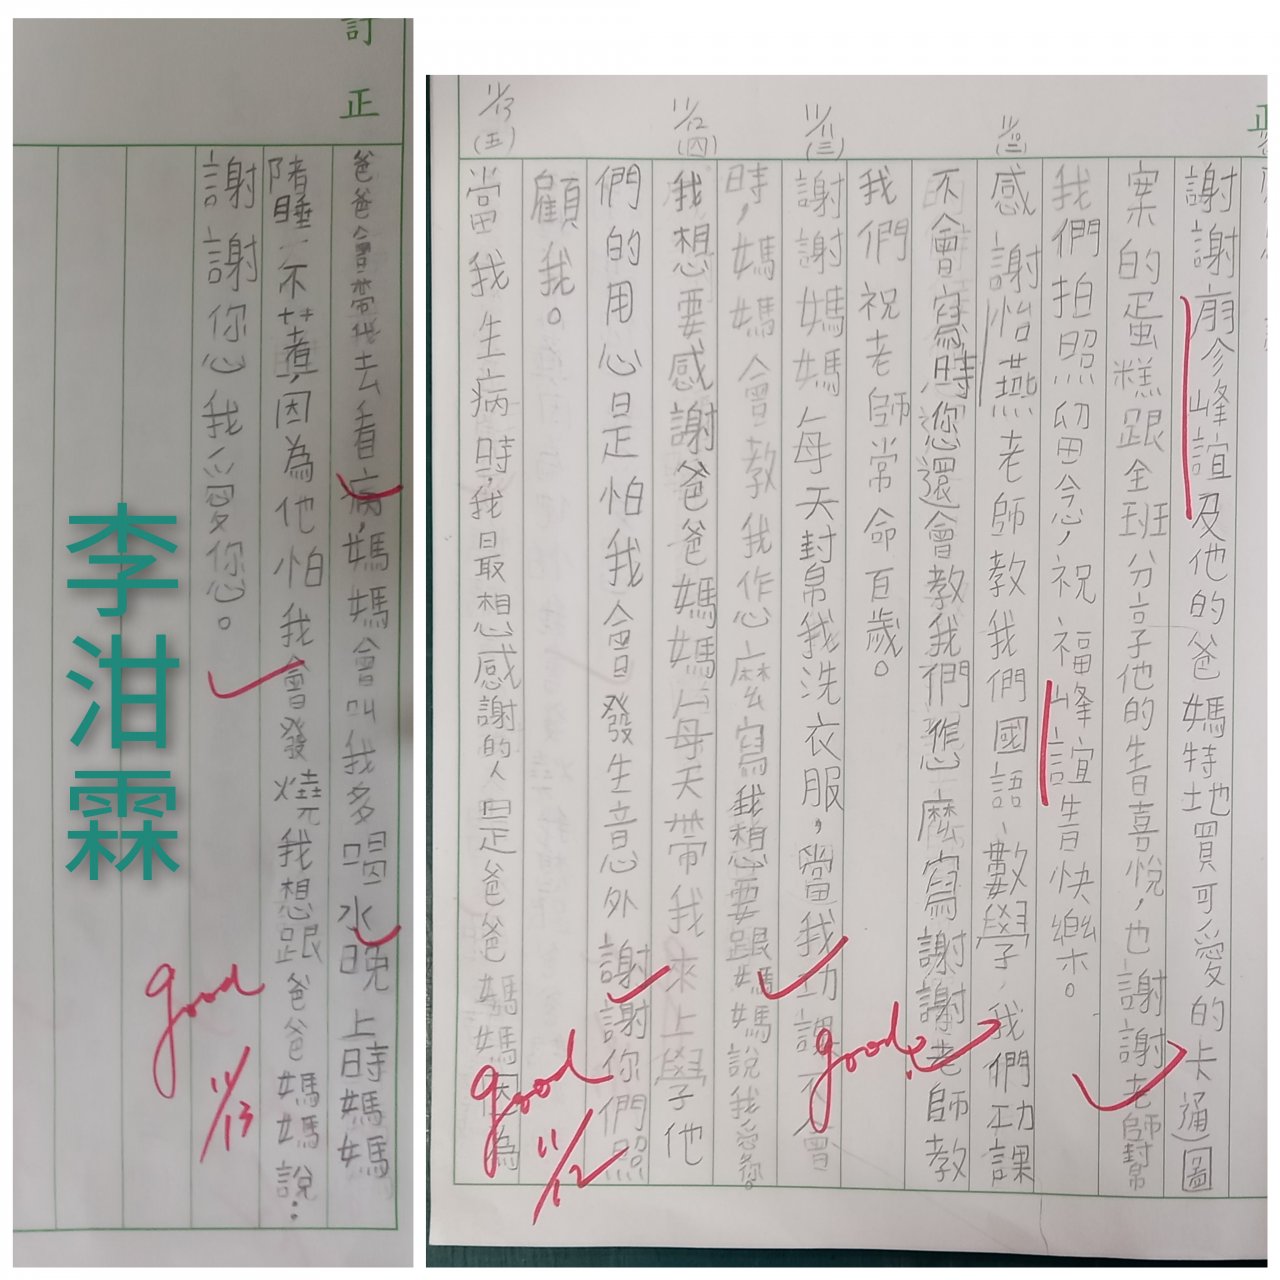 正
謝謝廖彥峰誼及他的爸媽特地買可愛的卡通圖
案的蛋糕跟全班分享他的生日喜悅，也謝謝老師幫
我們拍照留念，祝福峰誼生日快樂。
11/10(二)
感謝怡燕老師教我們國語、數學，我們功課
不會寫時您還會教我們怎麼寫謝謝老師教
我們祝老師常命百歲。
11/11(三)
謝謝媽媽每天封帛我洗衣服，當我功課不會
時，媽媽會教我作怎麼寫我想要跟媽媽說我愛你。
good
11/12(四)
我想要感謝爸爸媽媽每天帶我來上學他
們的用心是怕我會發生意外謝謝你們照
顧我。
good
11/12
11/13(五)
當我生病時，我最想感謝的人是爸爸媽媽因為
訂正
爸爸會帶我去看病，媽媽會叫我多喝水晚上時媽媽
睡不著，因為他怕我會發燒我想跟爸爸媽媽說：
謝謝您我愛您。
good
11/13
李泔霖